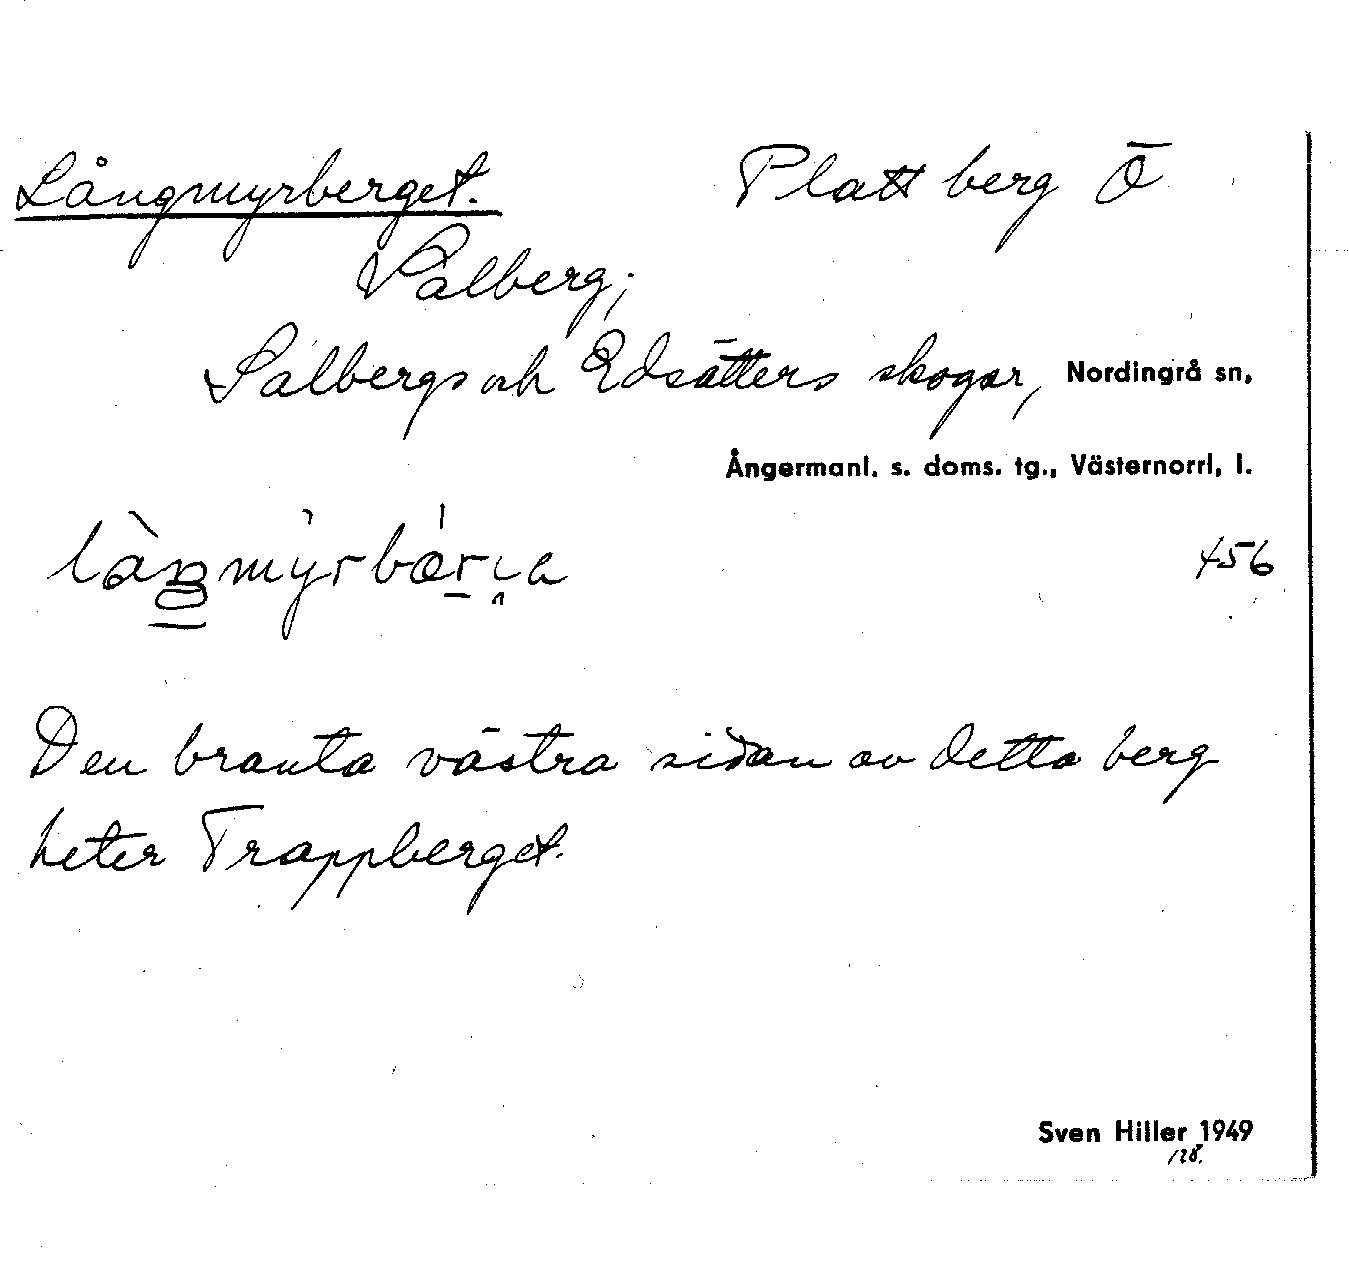 Långmyrberget. Platt berg Ö
Salberg;
Salbergs och Edsätters skogar, Nordingrå sn,
Ångermanl. s. doms. tg., Västernorrl, l.
456
Den branta västra sidan av detta berg
heter Trappberget.
Sven Hiller 1949
128.